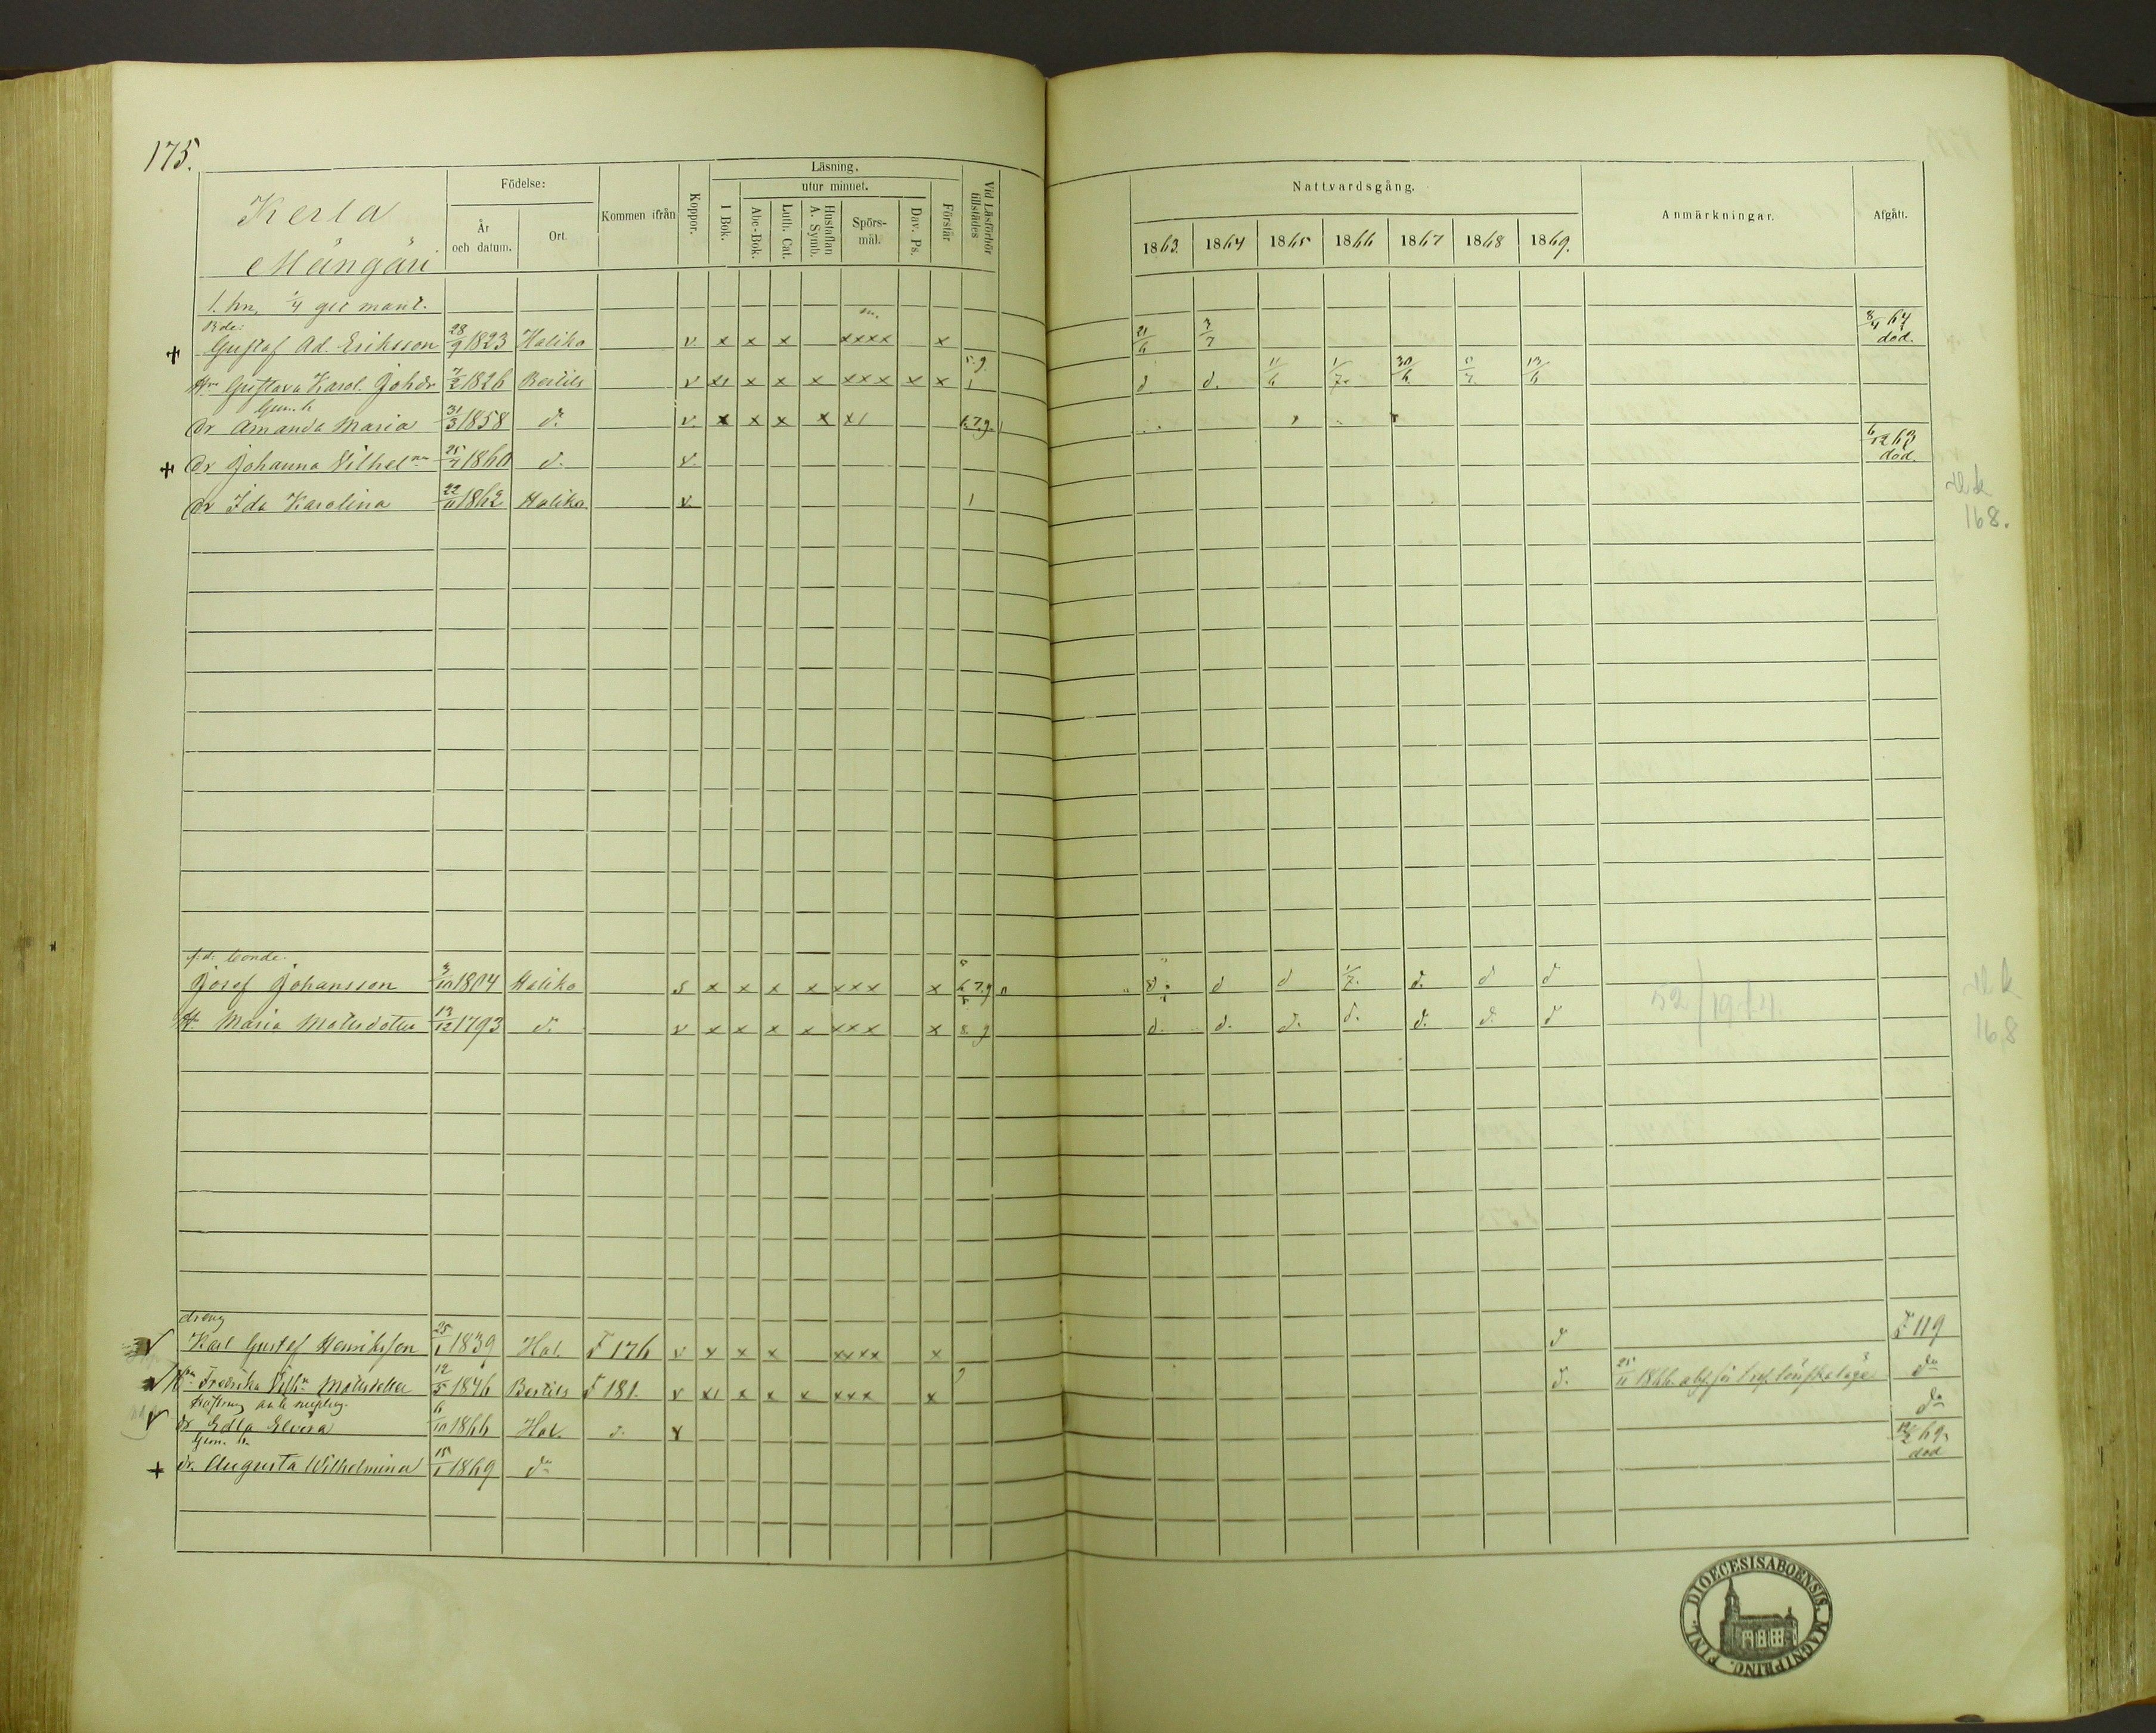 175.
Kerla
Mängäri
Födelse:
År och datum.
Ort.
Kommen ifrån
Koppor.
Läsning.
I Bok.
utur minnet.
Abc-Bok.
Luth. Cat.
Hustaflan A. Symb.
Spörs-mål.
Dav. Ps.
Förstår
Vid Läsförhör tillstädes
Nattvardsgång.
1863. 1864 1865 1866 1867 1868 1869.
Anmärkningar.
Afgått.
1. hn, 1/4 mant.
Bde:
Gustaf Ad. Eriksson 28/9 1823 Haliko v x x x xxxx x 21/6 3/7 8/4 64 död.
Hu Gustava Karol. Johdr 7/2 1826 Bertils v x1 x x x xxx x x d d. 11/6 1/7. 30/6 5/7 13/6
dr Amanda Maria 31/3 1858 d:o v. x x x x x1 6.7.9.
dr Johanna Vilhelma 25/4 1860 d. v. 6/12 63 död.
dr Ida Karolina 22/11 1862 Haliko. v. 1
168.
f.d. bonde.
Josef Johansson 3/10 1804 Haliko s x x x x xxx x d d 1/7. d. d d
H. Maria Matsdotter 13/12 1793 d:o v x x x x xxx x 8. 9 d. d. d. d. d. d. d
52/19/4
168
dreng
Karl Gustaf Henriksson 25/1 1839 Hal. F 176 v x x x xxxx x d F 119
Hu Fredrika Vilhа Matsdotter 12/5 1846 Bertils F 181. v x1 x x x xxx x d. 25/11 1866. da
dr Edla Elvira 6/10 1866 Hal. d. v da
Gem. b.
dr. Augusta Wilhelmina 15/1 1869 da 12/2 69. död
FINL. DIOECESIS ABOENSIS. MAGNI PRINC.